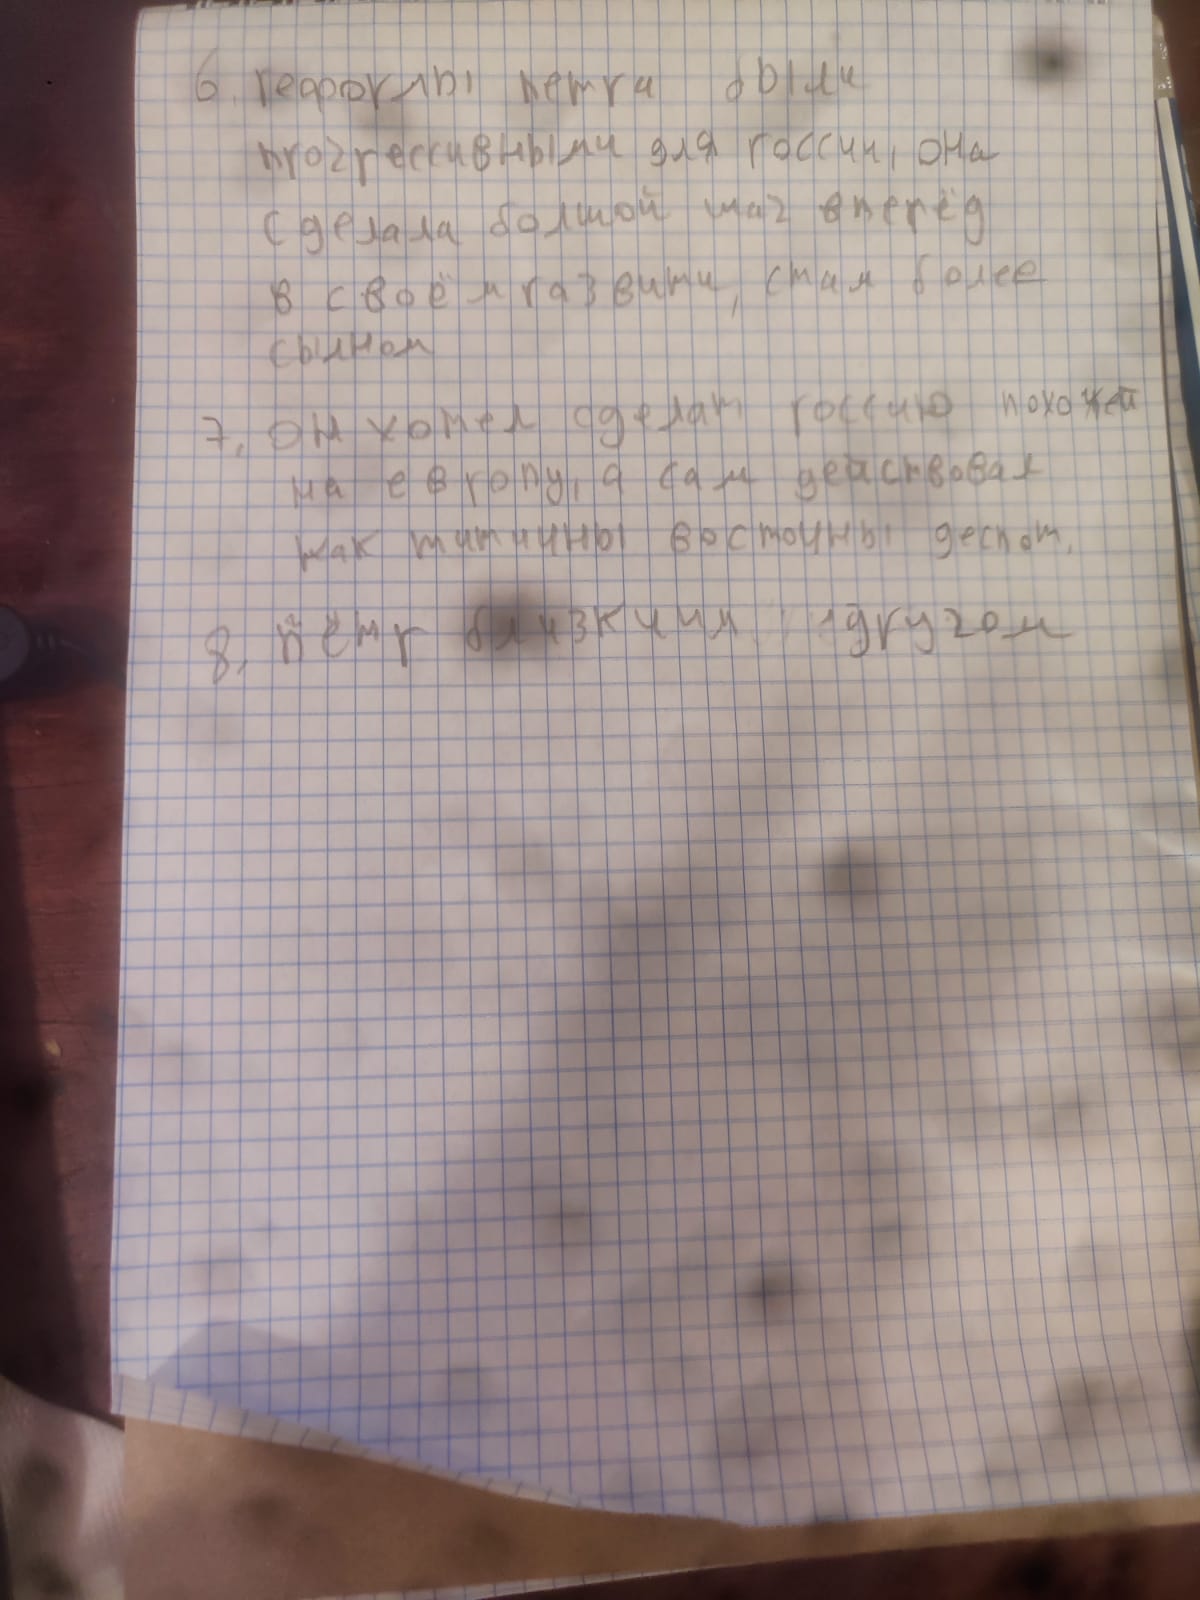 6. реформы петра были
прогрессивными для россии, она
сделала болшой шаг вперёд
в своём развити, стал более
сылном
7. он хотел сделат россию похожей
на европу, а сам действовал
как типичны восточны деспот.
8. Пётр близким другом